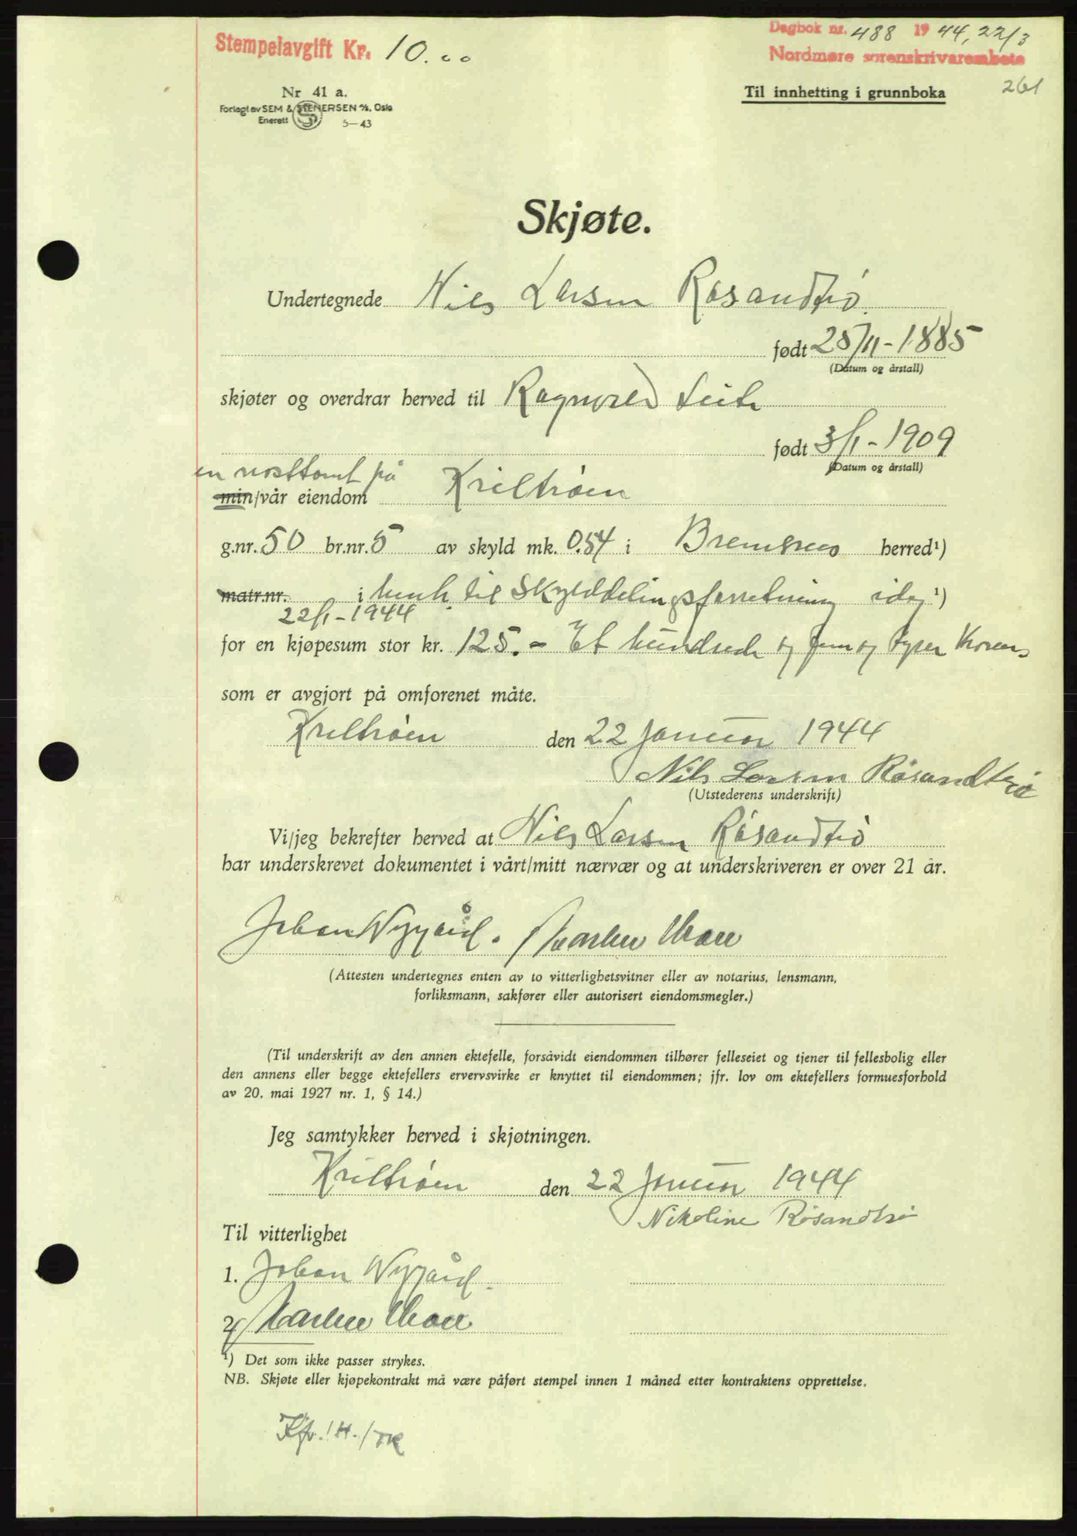 Stempelavgift Kr. 10.00
Dagbok nr. 488 1944, 22/3
Nordmøre sorenskrivarembete
261
Nr 41 a.
Forlagt av SEM & STENERSEN A/S, Oslo
Enerett 5-43
Til innhefting i grunnboka
Skjøte.
Undertegnede Nils Larsen Røsandtrø
født 25/11-1885
(Datum og årstall)
skjøter og overdrar herved til Ragnvald Leite
født 3/1-1909
(Datum og årstall)
en nosttomt på
min/vår eiendom
g.nr. 50 br.nr. 5 av skyld mk. 0.54 i Bremsnes herred¹)
matr.nr. i henh. til Skylddelingsforretning idag ¹)
22/1-1944
for en kjøpesum stor kr. 125.- Et hundrede og fem og tyve Kroner
som er avgjort på omforenet måte.
den 22 Januar 1944
Nils Larsen Røsandtrø
(Utstederens underskrift)
Vi/jeg bekrefter herved at Nils Larsen Røsandtrø
har underskrevet dokumentet i vårt/mitt nærvær og at underskriveren er over 21 år.
Johan Nygård.
(Attesten undertegnes enten av to vitterlighetsvitner eller av notarius, lensmann,
forliksmann, sakfører eller autorisert eiendomsmegler.)
(Til underskrift av den annen ektefelle, forsåvidt eiendommen tilhører felleseiet og tjener til fellesbolig eller
den annens eller begge ektefellers ervervsvirke er knyttet til eiendommen; jfr. lov om ektefellers formuesforhold
av 20. mai 1927 nr. 1, § 14.)
Jeg samtykker herved i skjøtningen.
den 22 Januar 1944
Nikoline Røsandtrø
Til vitterlighet
1. Johan Nygård.
2
¹) Det som ikke passer strykes.
NB. Skjøte eller kjøpekontrakt må være påført stempel innen 1 måned etter kontraktens opprettelse.